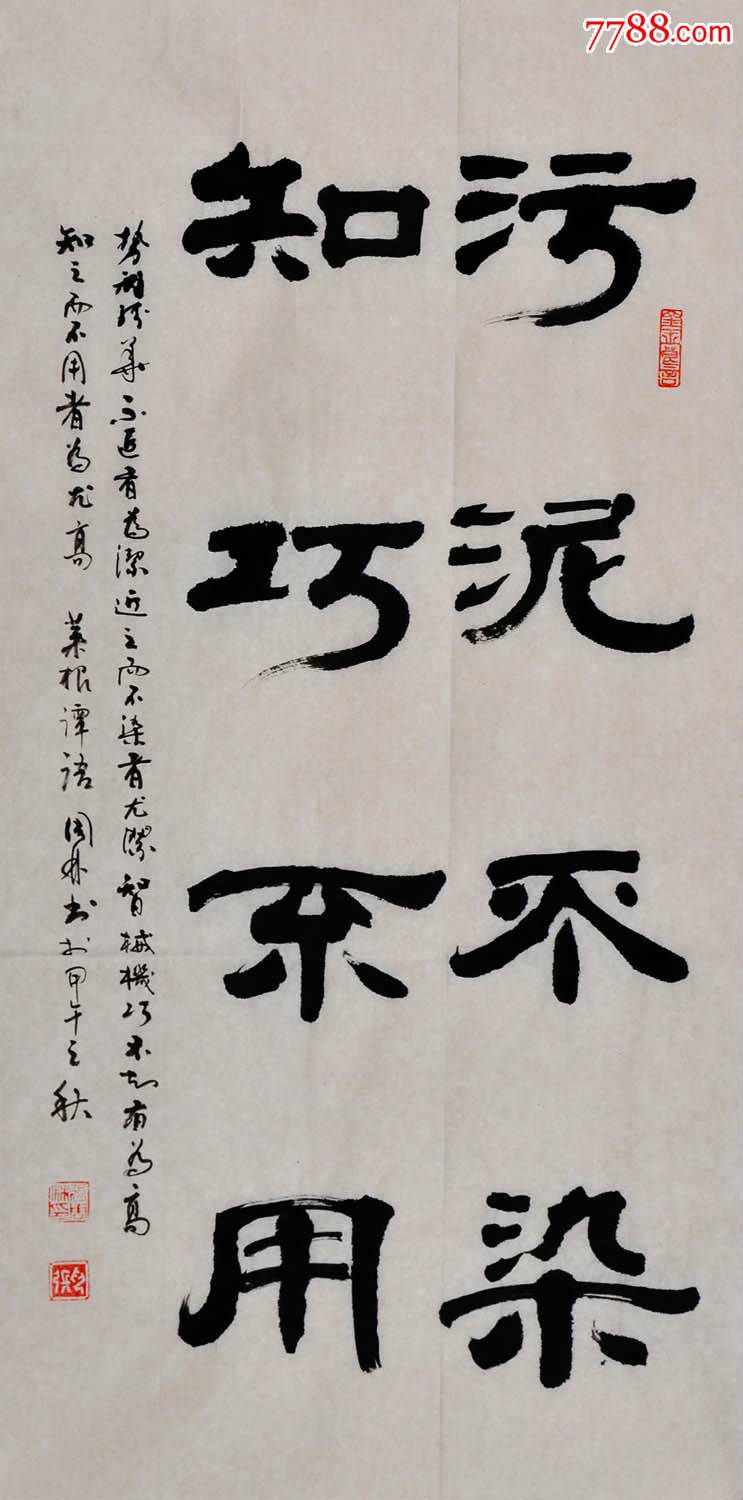 7788.com
污泥不染
知巧不用
势利纷華不近者為潔近之而不染者尤潔智械機巧不知者為高
知之而不用者為尤高 菜根谭语 周林书於甲午之秋